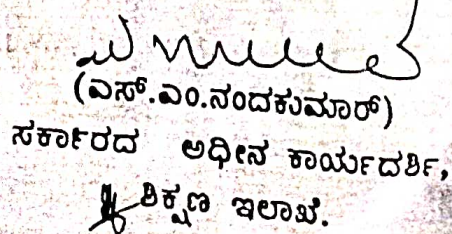 (ಎಸ್.ಎಂ.ನಂದಕುಮಾರ್)
ಸರ್ಕಾರದ ಅಧೀನ ಕಾರ್ಯದರ್ಶಿ,
ಶಿಕ್ಷಣ ಇಲಾಖೆ.